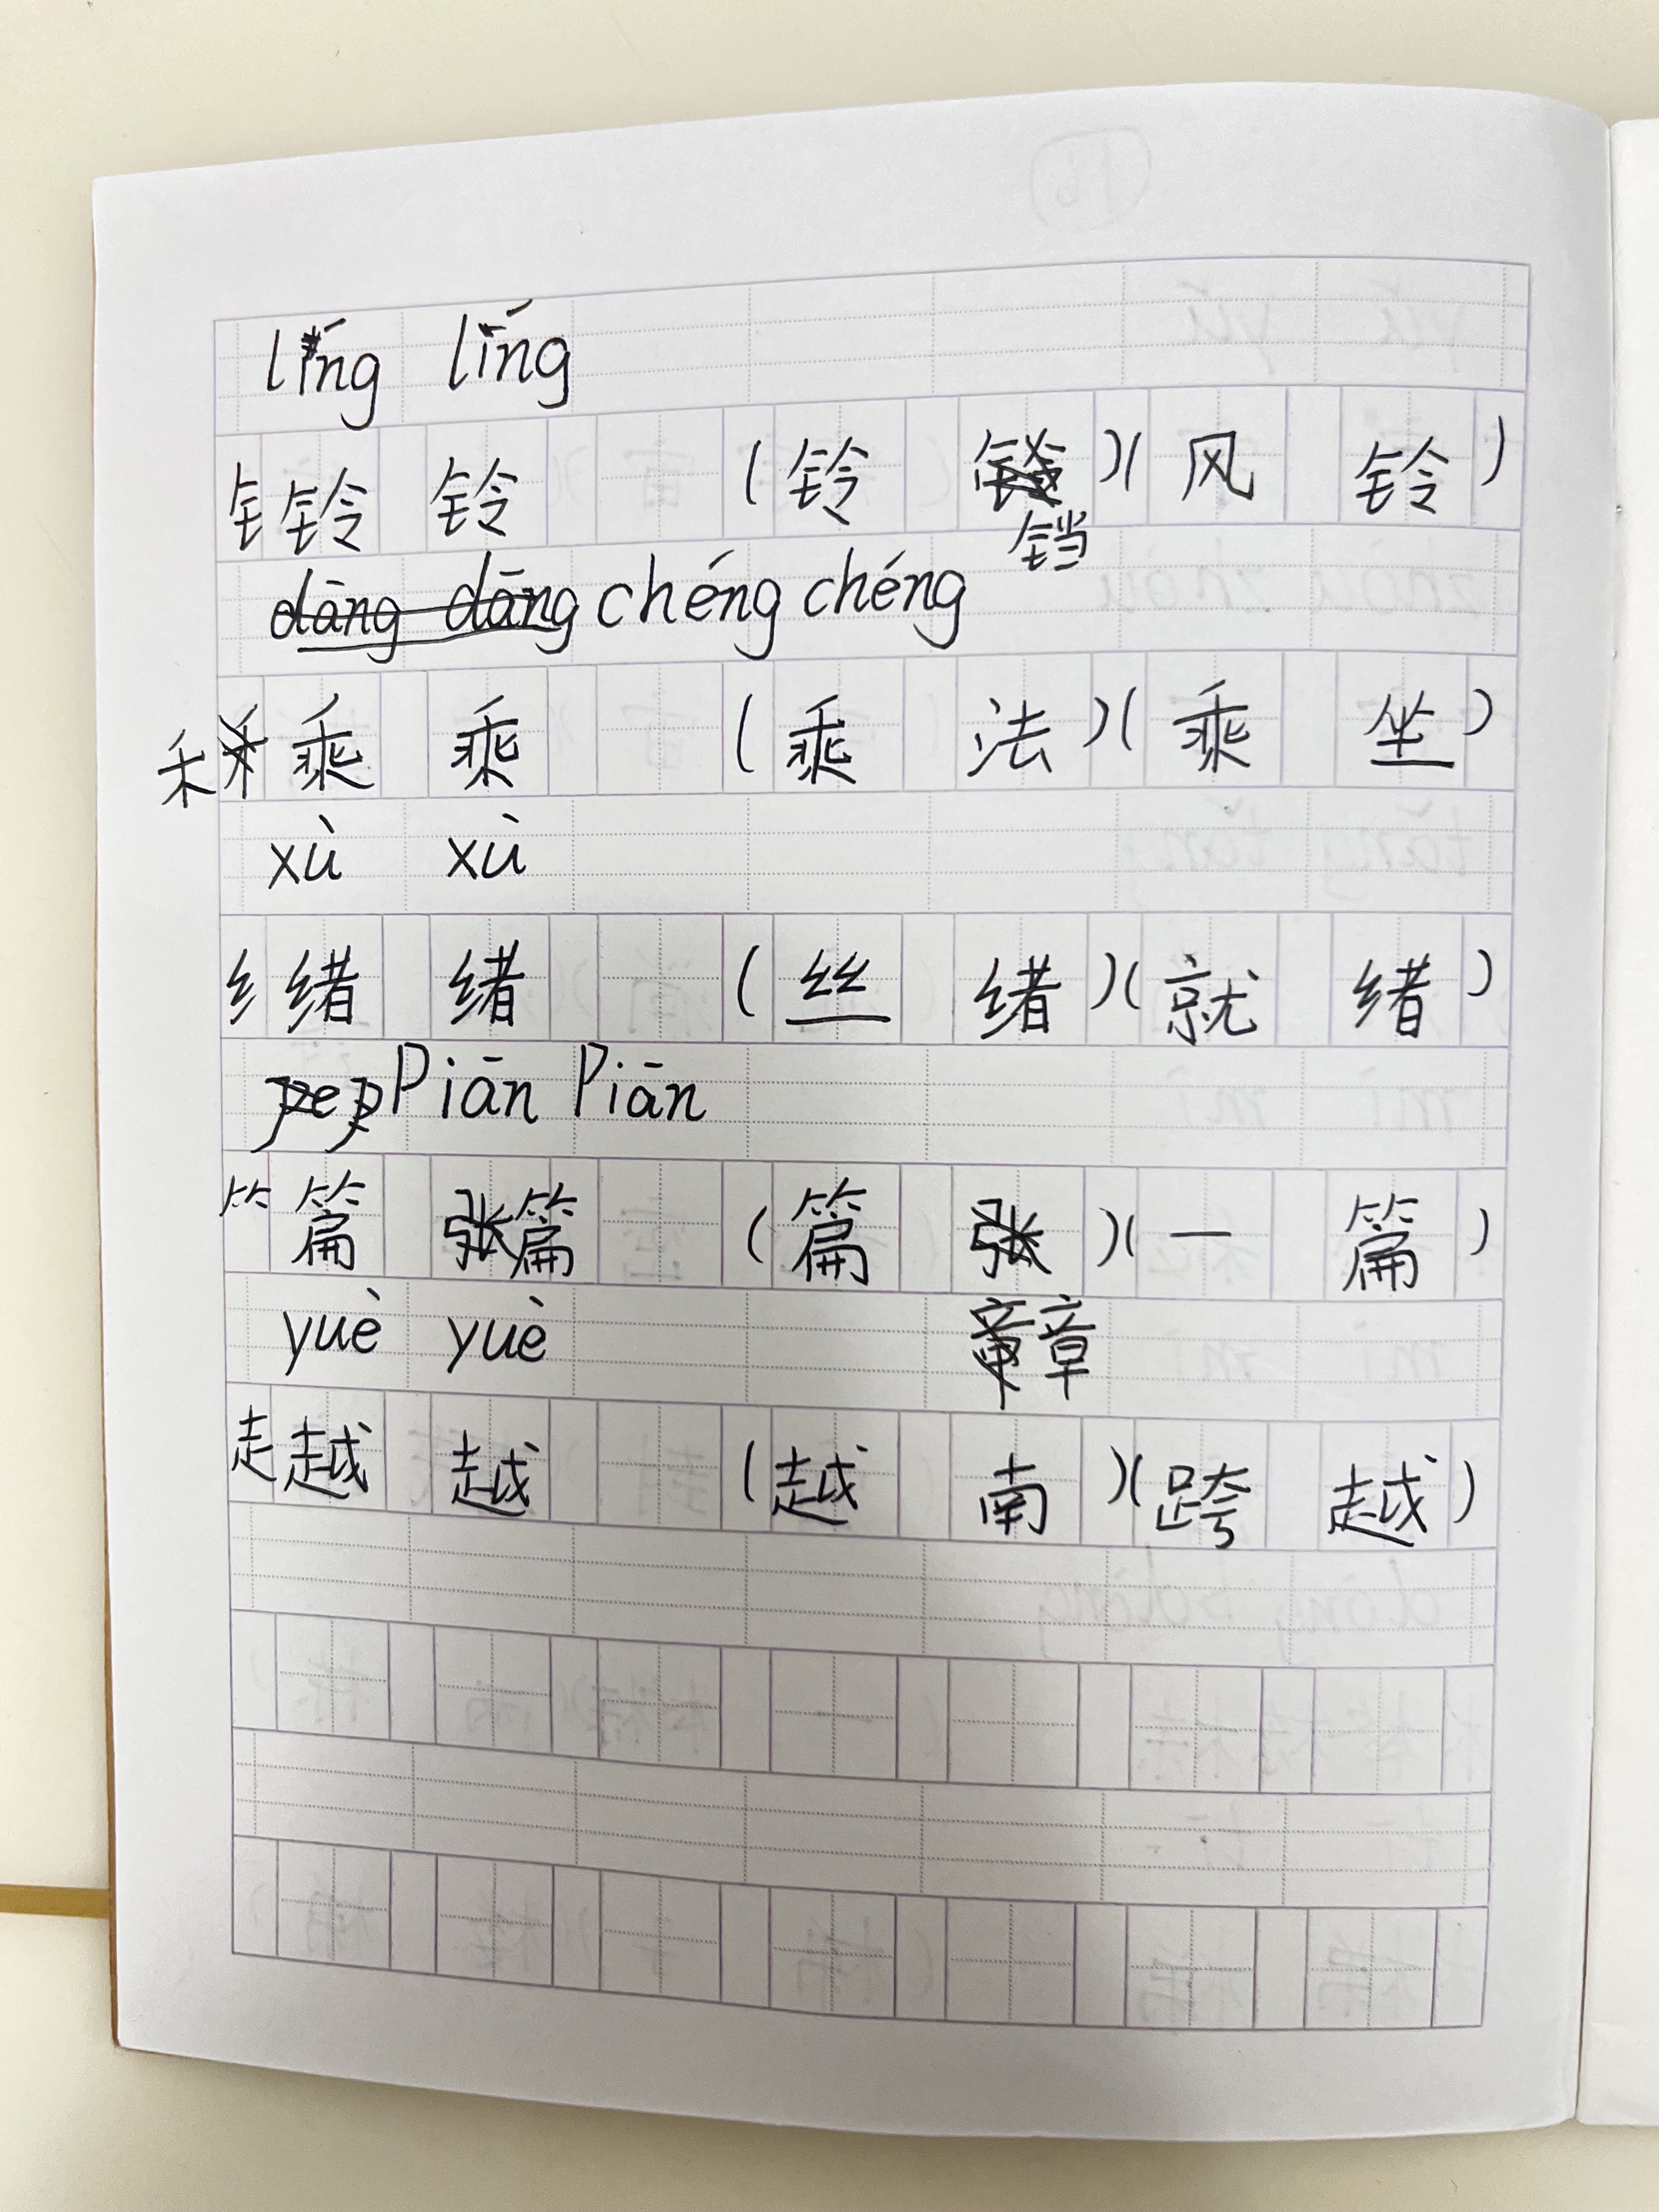 líng líng
钅铃 铃 (铃 铛)(风 铃)
chéng chéng
禾乘 乘 (乘 法)(乘 坐)
xù xù
纟绪 绪 (丝 绪)(就 绪)
Piān Piān
⺮篇 篇 (篇 章)(一 篇)
yuè yuè
走越 越 (越 南)(跨 越)